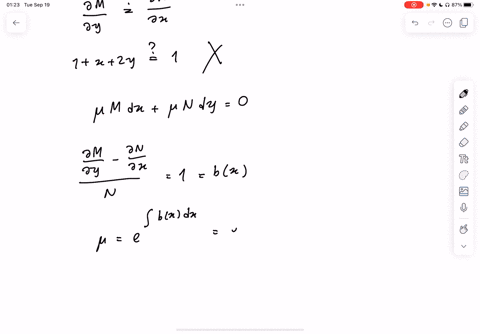 01:23 Tue Sep 19 ... 87%
∂M/∂y ?= ∂N/∂x
1 + x + 2y ?= 1 X
μ M dx + μ N dy = 0
(∂M/∂y - ∂N/∂x)/N = 1 = b(x)
μ = e^{∫ b(x) dx} =